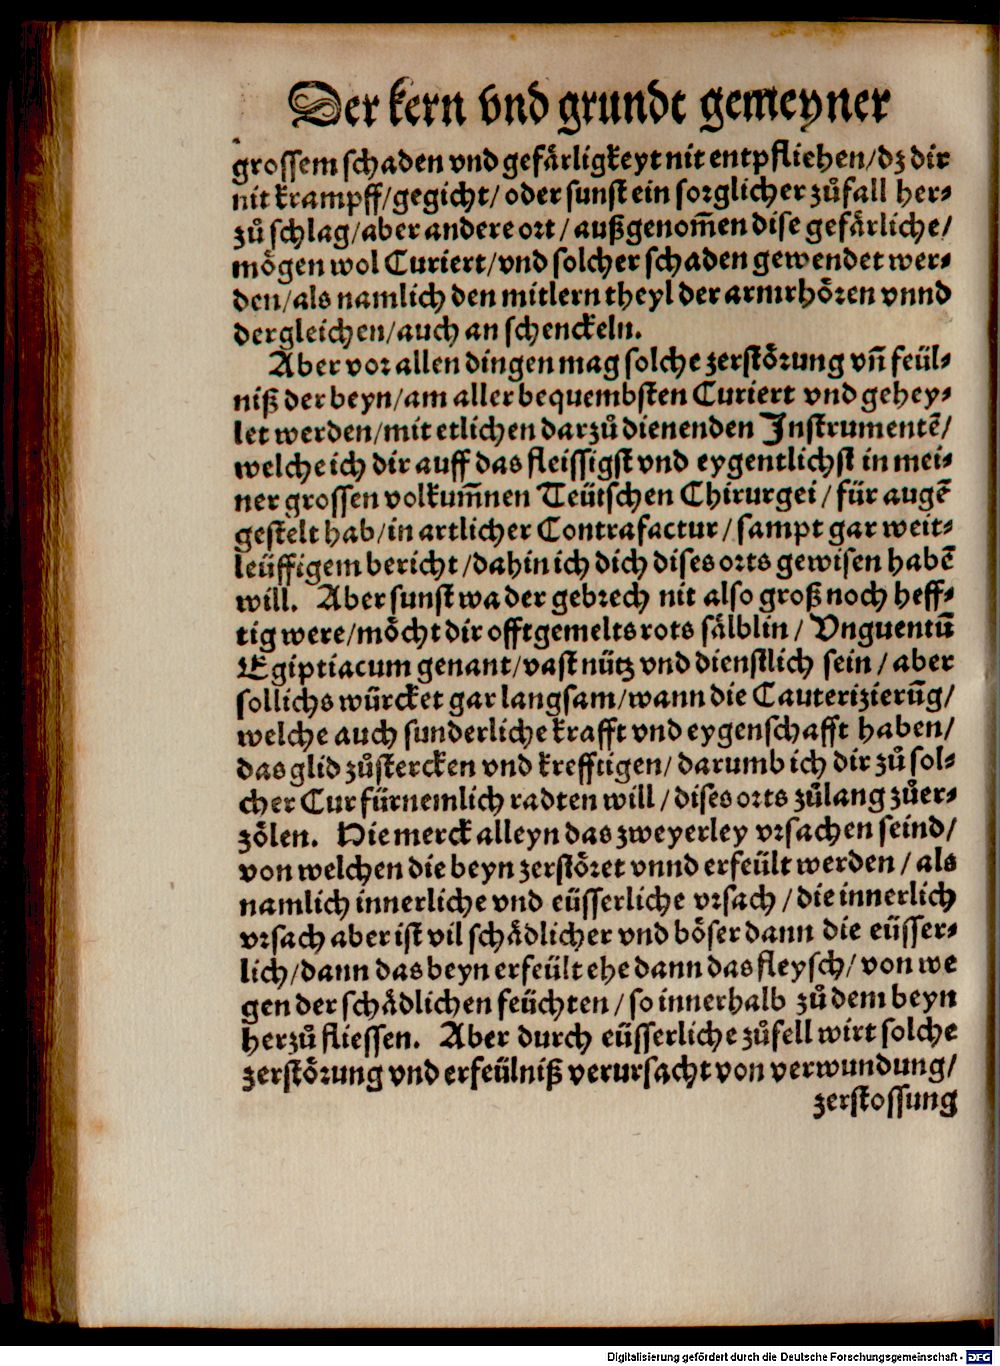 Der kern vnd grundt gemeyner
grossem schaden vnd gefärligkeyt nit entpfliehen/dz dir
nit krampff/gegicht/ oder sunst ein sorglicher zůfall her-
zů schlag/aber andere ort/ außgenom̃en dise gefärliche/
mögen wol Curiert/vnd solcher schaden gewendet wer-
den/als namlich den mitlern theyl der armrhören vnnd
dergleichen/auch an schenckeln.
Aber vor allen dingen mag solche zerstörung vñ feül-
niß der beyn/am aller bequembsten Curiert vnd gehey-
let werden/mit etlichen darzů dienenden Instrumentē/
welche ich dir auff das fleissigst vnd eygentlichst in mei-
ner grossen volkum̃nen Teütschen Chirurgei/ für augē
gestelt hab/in artlicher Contrafactur/ sampt gar weit-
leüffigem bericht/dahin ich dich dises orts gewisen habē
will. Aber sunst wa der gebrech nit also groß noch heff-
tig were/möcht dir offtgemelts rots sälblin/ Vnguentū
Egiptiacum genant/vast nütz vnd dienstlich sein/ aber
sollichs würcket gar langsam/wann die Cauterizierūg/
welche auch sunderliche krafft vnd eygenschafft haben/
das glid zůstercken vnd krefftigen/ darumb ich dir zů sol-
cher Cur fürnemlich radten will/ dises orts zůlang zůer-
zölen. Hie merck alleyn das zweyerley vrsachen seind/
von welchen die beyn zerstöret vnnd erfeült werden/ als
namlich innerliche vnd eüsserliche vrsach/ die innerlich
vrsach aber ist vil schädlicher vnd böser dann die eüsser-
lich/dann das beyn erfeült ehe dann das fleysch/ von we
gen der schädlichen feüchten/ so innerhalb zů dem beyn
herzů fliessen. Aber durch eüsserliche zůfell wirt solche
zerstörung vnd erfeülniß verursacht von verwundung/
zerstossung
Digitalisierung gefördert durch die Deutsche Forschungsgemeinschaft - DFG